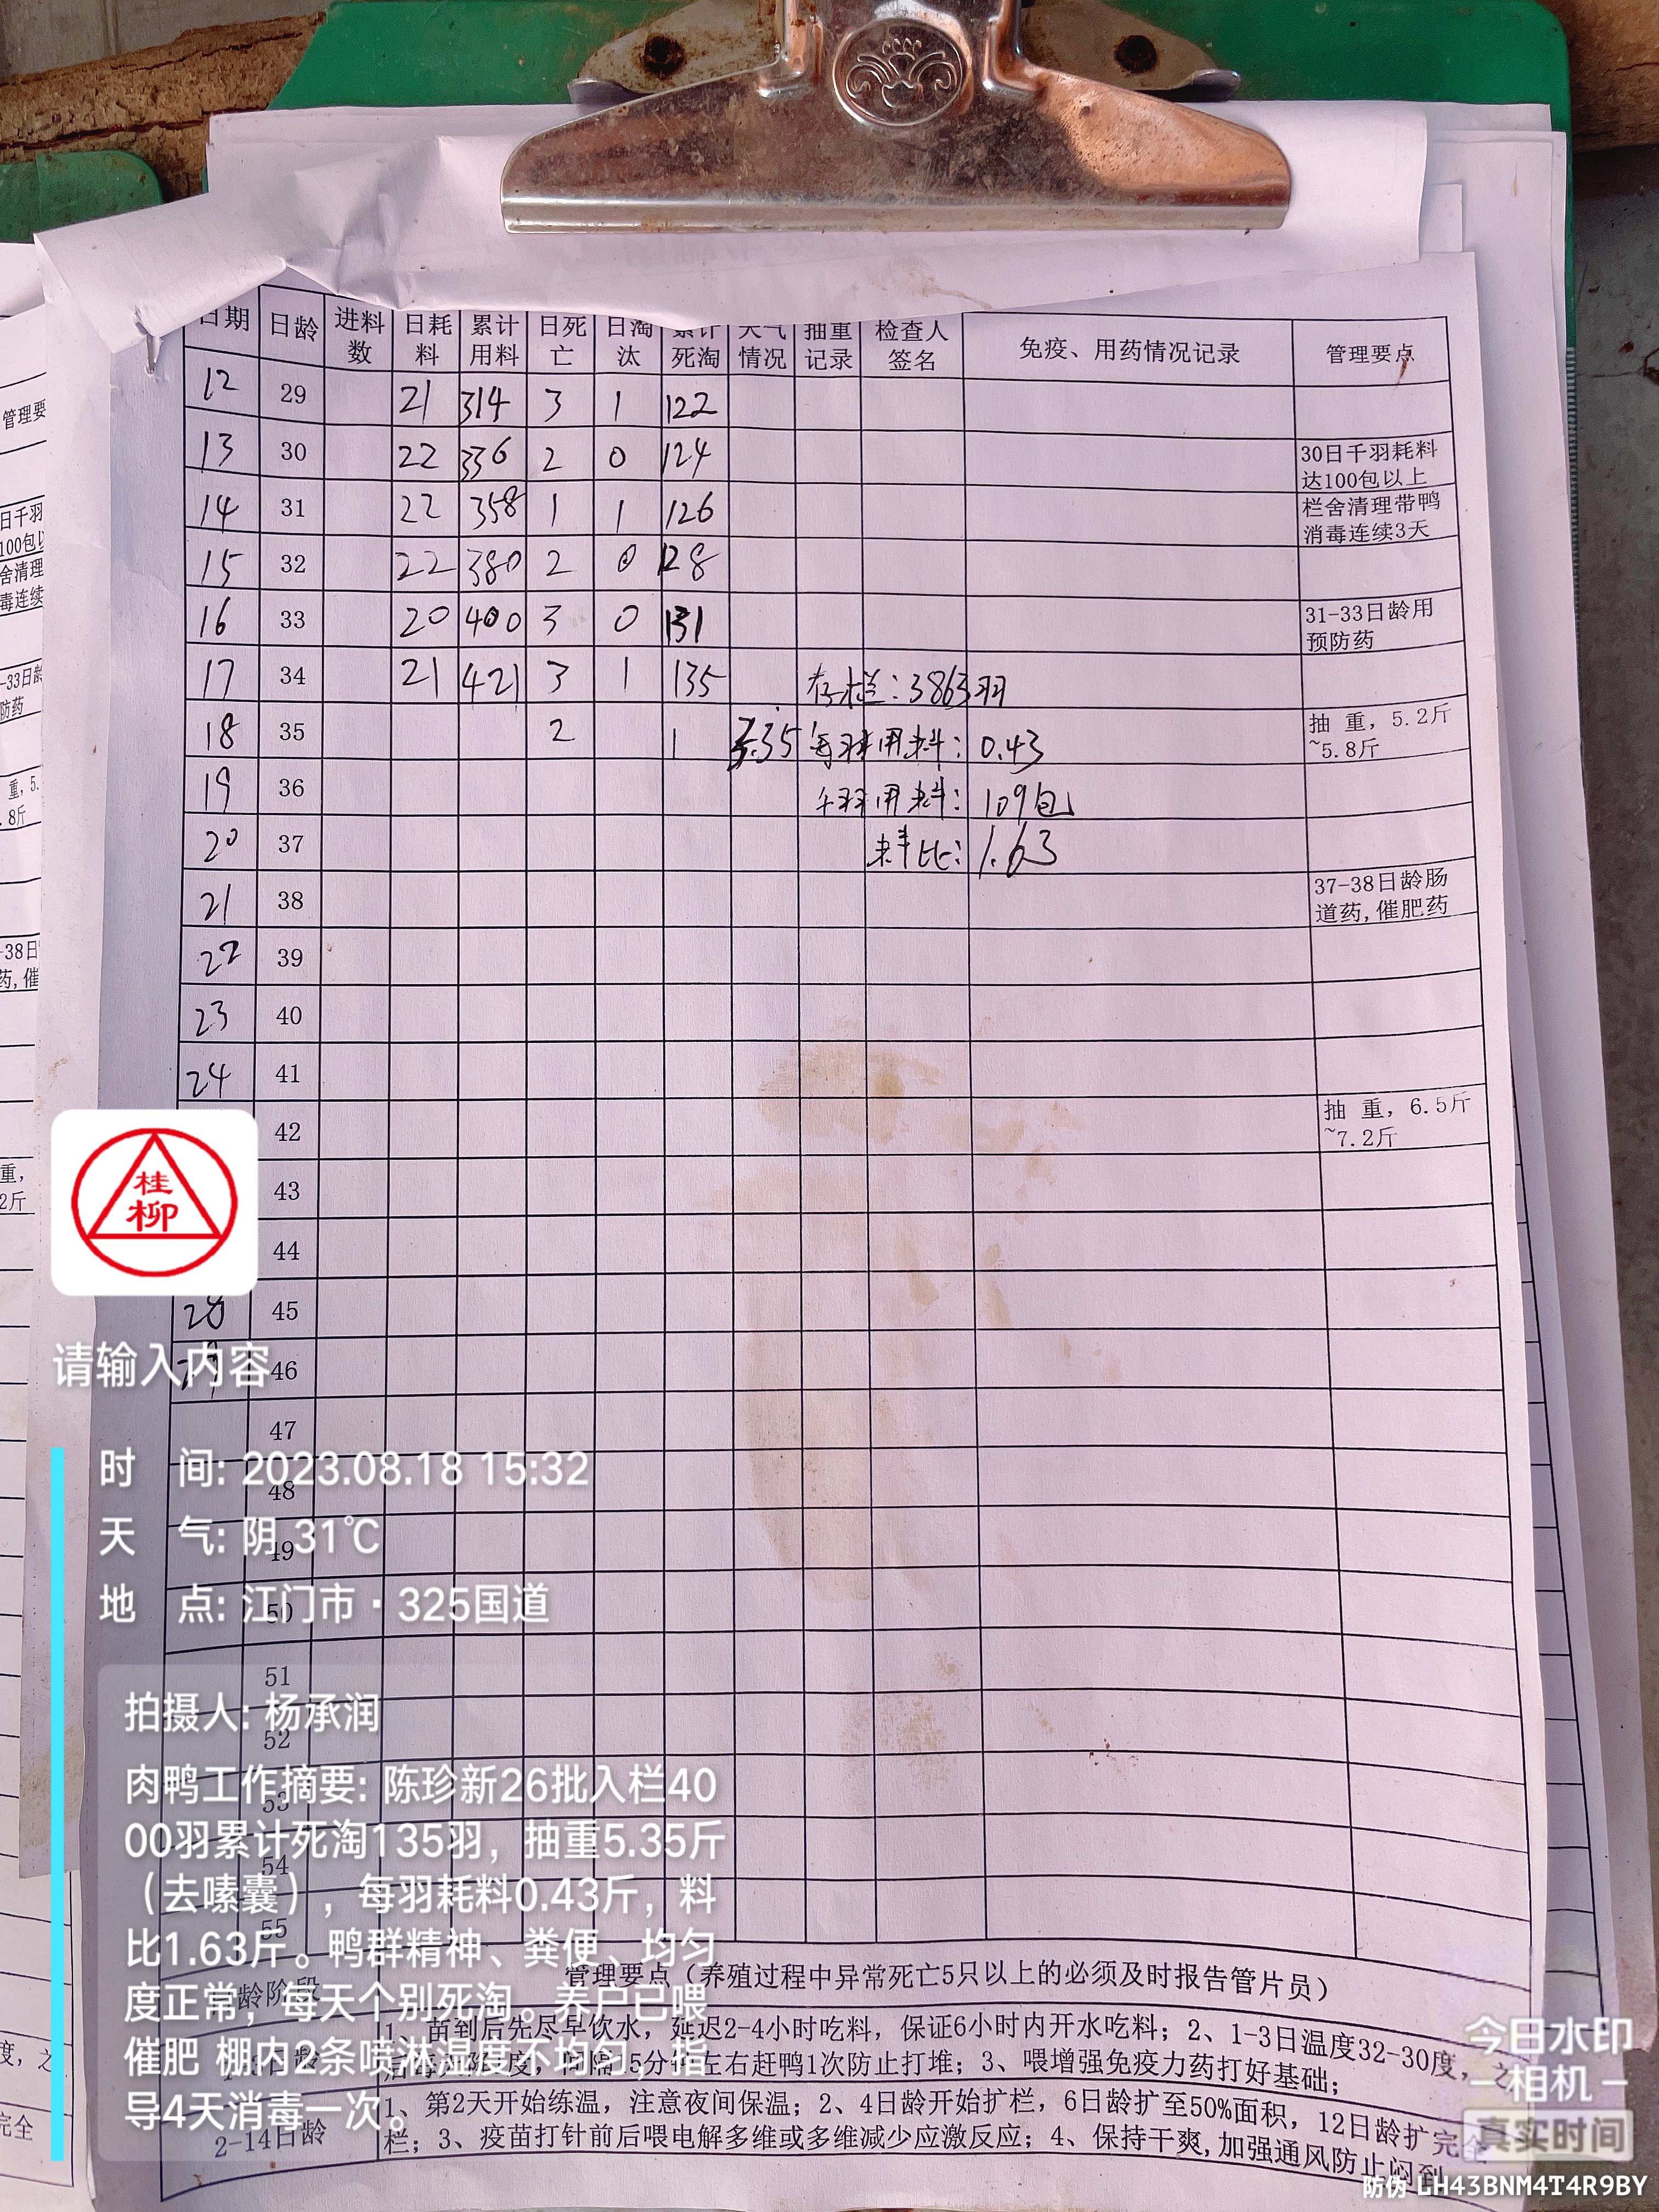 日期 日龄 进料数 日耗料 累计用料 日死亡 日淘汰 累计死淘 天气情况 抽重记录 检查人签名 免疫、用药情况记录 管理要点
12 29 21 314 3 1 122
13 30 22 336 2 0 124 30日千羽耗料达100包以上
14 31 22 358 1 1 126 栏舍清理带鸭消毒连续3天
15 32 22 380 2 0 128
16 33 20 400 3 0 131 31-33日龄用预防药
17 34 21 421 3 1 135 存栏:3863羽
18 35 2 1 5.35 每羽用料:0.43 抽 重，5.2斤~5.8斤
19 36 千羽用料:109包
20 37 料比:1.63
21 38 37-38日龄肠道药,催肥药
22 39
23 40
24 41
42 抽 重，6.5斤~7.2斤
43
44
28 45
46
47
48
49
50
51
52
53
54
55
桂
柳
请输入内容
时 间: 2023.08.18 15:32
天 气: 阴 31℃
地 点: 江门市·325国道
拍摄人: 杨承润
肉鸭工作摘要: 陈珍新26批入栏40
00羽累计死淘135羽，抽重5.35斤
（去嗉囊），每羽耗料0.43斤，料
比1.63斤。鸭群精神、粪便、均匀
度正常，每天个别死淘。养户已喂
催肥 棚内2条喷淋湿度不均匀，指
导4天消毒一次。
管理要点（养殖过程中异常死亡5只以上的必须及时报告管片员）
1、苗到后先尽早饮水，延迟2-4小时吃料，保证6小时内开水吃料；2、1-3日温度32-30度，之
左右赶鸭1次防止打堆；3、喂增强免疫力药打好基础；
2-14日龄
1、第2天开始练温，注意夜间保温；2、4日龄开始扩栏，6日龄扩至50%面积，12日龄扩完全
栏；3、疫苗打针前后喂电解多维或多维减少应激反应；4、保持干爽,加强通风防止闷到
今日水印
相机
真实时间
防伪 LH43BNM4T4R9BY